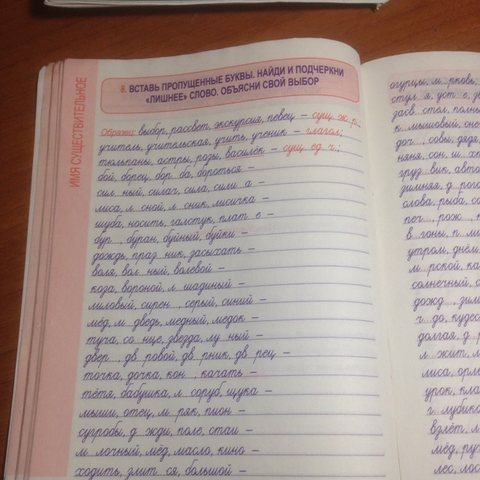 ИМЯ СУЩЕСТВИТЕЛЬНОЕ
8. ВСТАВЬ ПРОПУЩЕННЫЕ БУКВЫ. НАЙДИ И ПОДЧЕРКНИ
«ЛИШНЕЕ» СЛОВО. ОБЪЯСНИ СВОЙ ВЫБОР
Образец: выбор, рассвет, экскурсия, певец – сущ. ж. р.;
учитель, учительская, учить, ученик – глагол;
тюльпаны, астры, розы, василёк – сущ. ед. ч.;
бой, борец, бор..ба, бороться –
сил..ный, силач, сила, сили..а –
лиса, л..сной, л..сник, лисичка –
шуба, носить, галстук, плат..е –
бур.., буран, буйный, буйки –
дождь, праз..ник, засыхать –
воля, вол..ный, волевой –
коза, вороной, л..шадиный –
лиловый, сирен.., серый, синий –
мёд, м..дведь, медный, медок –
туча, со..нце, звезда, лу..ный –
двер.., дв..ровой, дв..рник, дв..рец –
точка, дочка, кон.., качать –
тётя, бабушка, л..соруб, щука –
мыши, отец, м..ряк, пион –
сугробы, д..жди, поле, стаи –
м..лочный, мёд, масло, кино –
ходить, злит..ся, большой –
огурцы, м..рковь,
стул..я, уст..е,
засв..стел, полны
к..мышовый, сно
дог.., совы, дядя,
няня, сон, ш..х
груз..вик, авто
зимняя, д..рога
олова, рыба, со
печ.., рож..,
в..гоны, п..
утром, днём,
м..рской, ка
солнечный,
дожд.., зим
ч..до, кудес
долгая, д..р
л..жит, м
лиса, орл
урок, кла
г..лубика
взлёт, м
мёд, ру
лео, лос